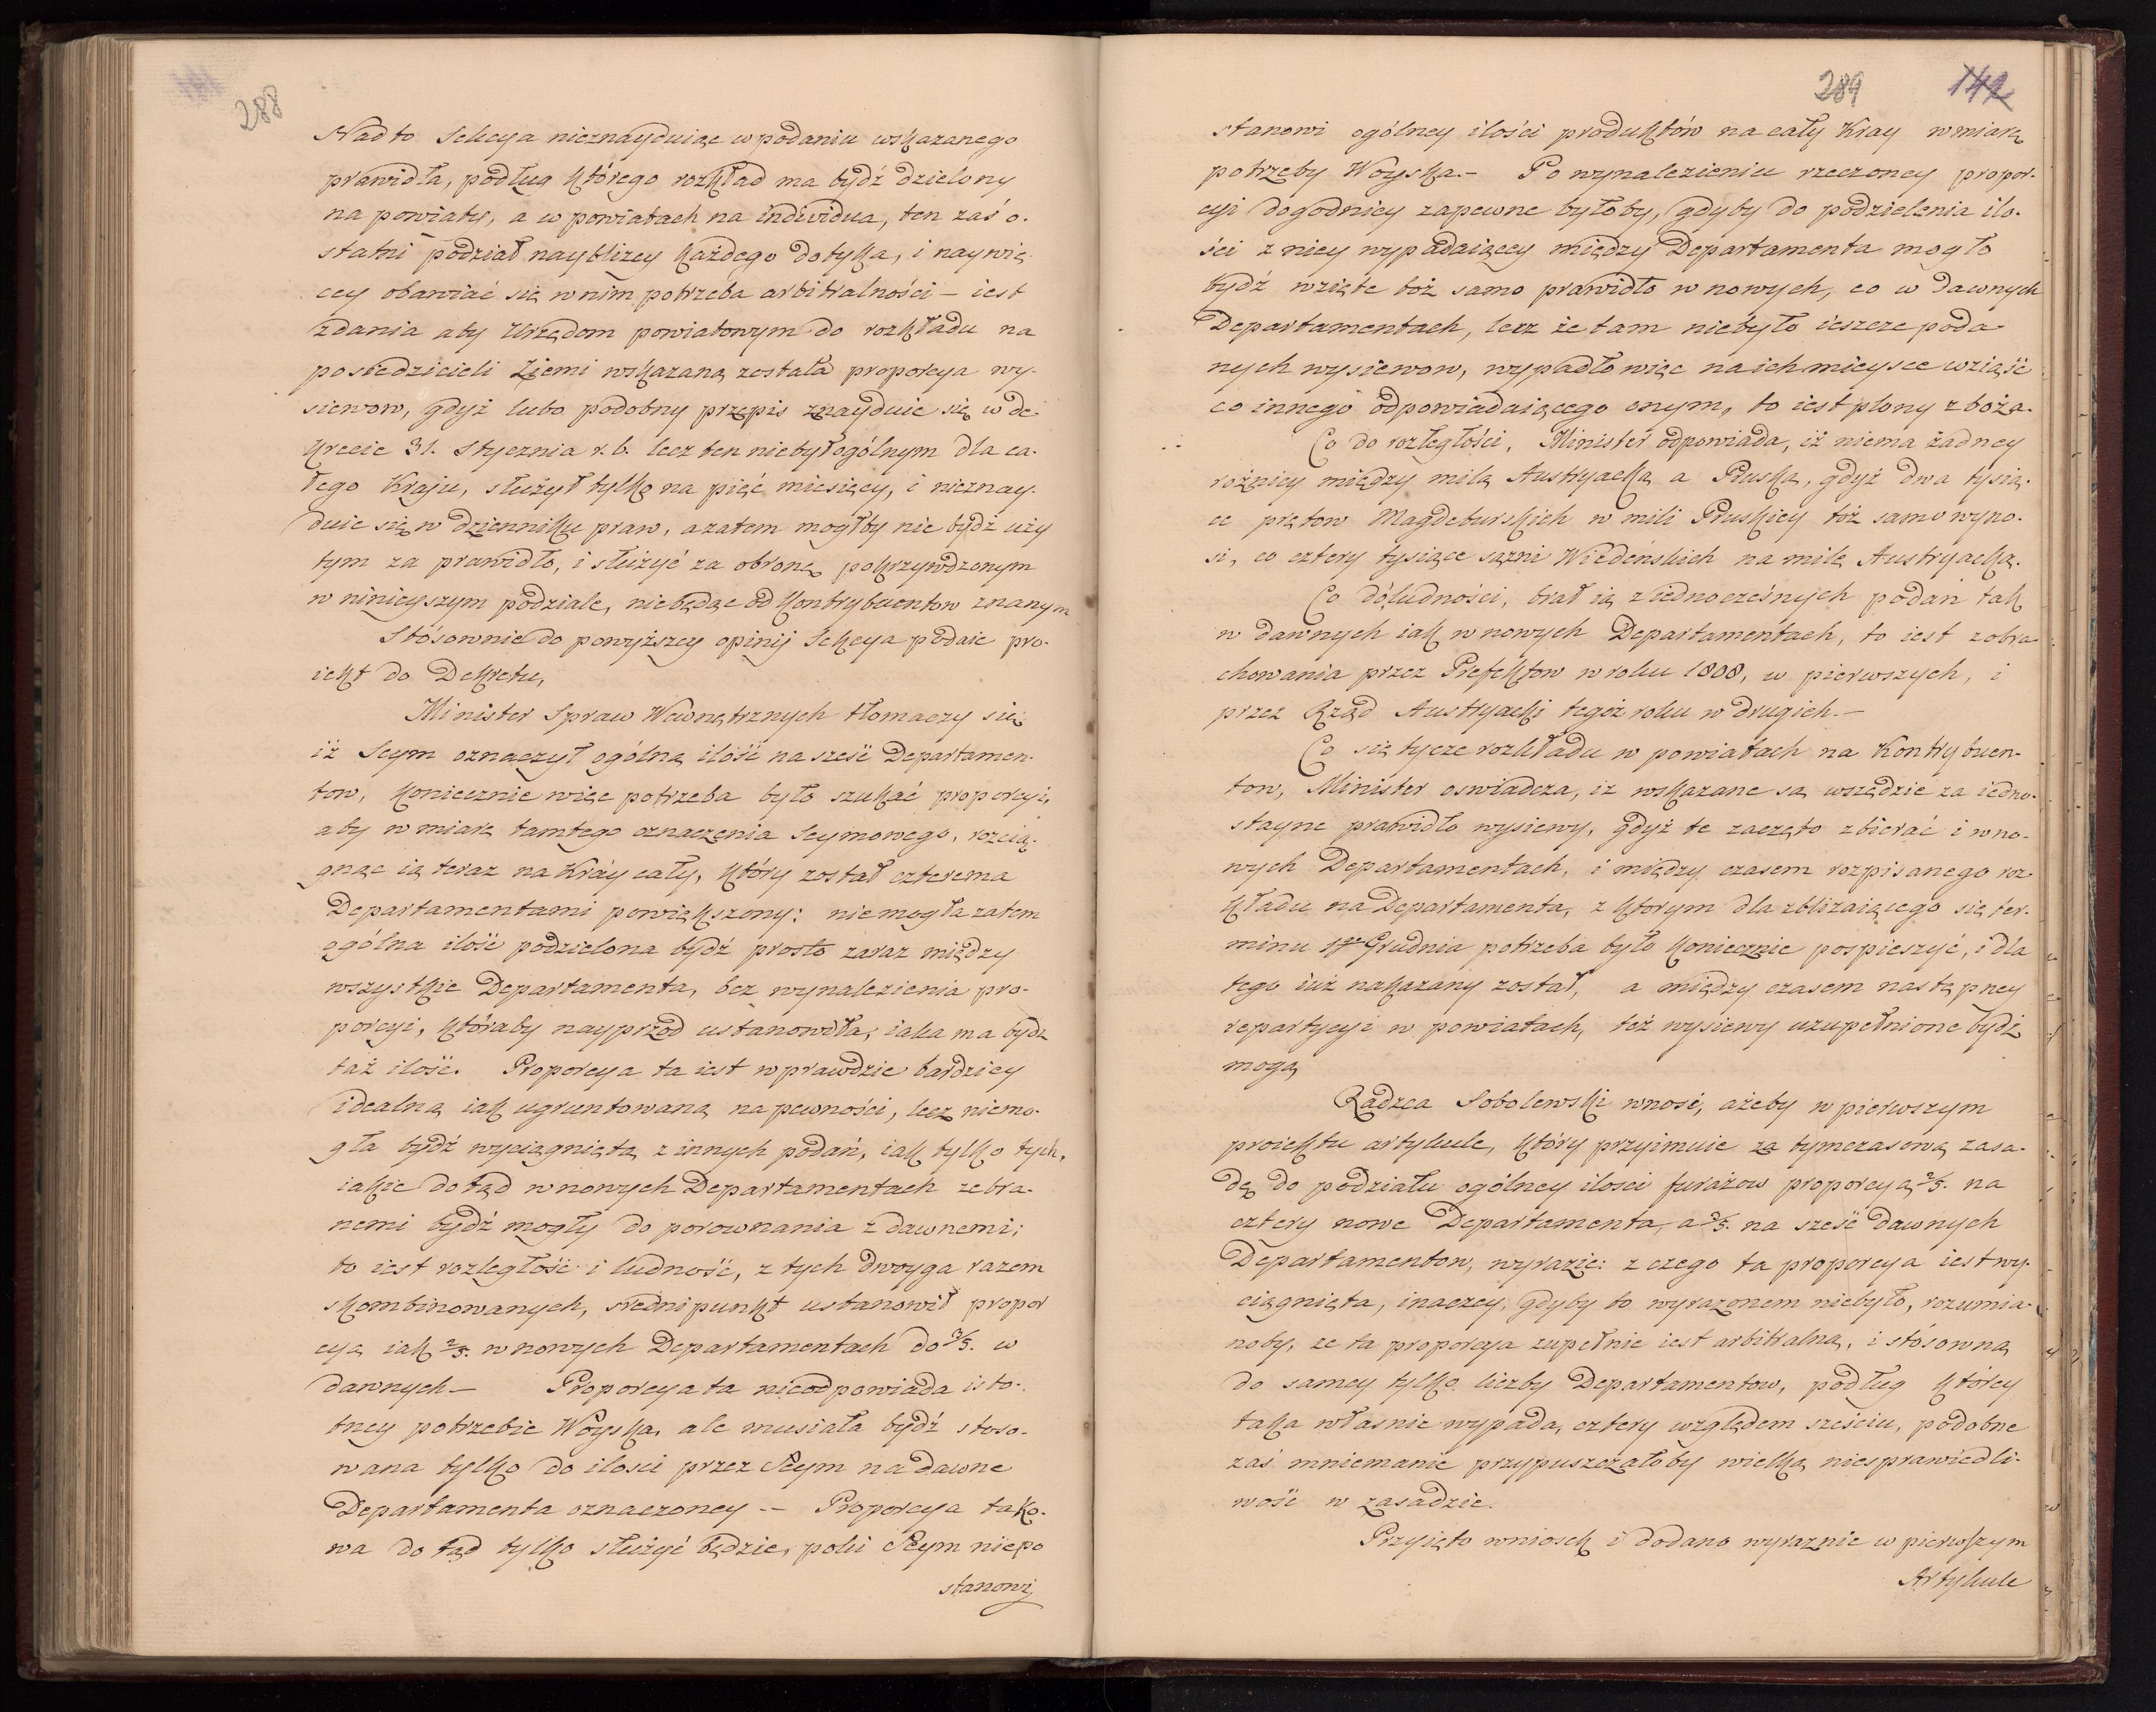 288
Nadto Sekcya nieznayduiąc w podaniu wskazanego
prawidła, podług którego rozkład ma bydź dzielony
na powiaty, a w powiatach na individua, ten zaś o-
statni podział nayblizey każdego dotyka, i naywię
cey obawiać się w nim potrzeba arbitralności – iest
zdania aby Urzędom powiatowym do rozkładu na
posiedzicieli Ziemi wskazaną została proporcya wy-
siewow, gdyż lubo podobny przepis znayduie się w de-
krecie 31. Stycznia r. b. lecz ten niebył ogólnym dla ca-
łego Kraju, służył tylko na pięć miesięcy, i nieznay-
duie się w dzienniku praw, a zatem mogłby nie bydź uży
tym za prawidło, i służyć za obronę pokrzywdzonym
w ninieyszym podziale, niebędąc od Kontrybuentow znanym
Stósownie do powyższey opinij Sekcya podaie pro-
iekt do Dekretu,
Minister Spraw Wewnętrznych tłomaczy się
iż Seym oznaczył ogólną ilość na sześć Departamen-
tow, koniecznie więc potrzeba było szukać proporcyi,
aby w miarę tamtego oznaczenia Seymowego, rozcią-
gnąc ią teraz na Kráy cały, który został czterema
Departamentami powiększony: niemogła zatem
ogólna ilość podzielona bydź prosto zaraz między
wszystkie Departamenta, bez wynalezienia pro-
porcyi, któraby nayprzod ustanowiła, iaka ma bydz
taż ilość. Proporcya ta iest wprawdzie bardziey
idealną iak ugruntowaną na pewności, lecz niemo-
gła bydź wyciągniętą z innych podań, iak tylko tych,
iakie dotąd w nowych Departamentach zebra-
nemi bydź mogły do porownania z dawnemi;
to iest rozległość i ludność, z tych dwoyga razem
skombinowanych, sredni punkt ustanowił propor
cyą iak 2/5. w nowych Departamentach do 3/5. w
dawnych – Proporcya ta nieodpowiada isto-
tney potrzebie Woyska, ale musiała bydź stoso-
wana tylko do ilosci przez Seym na dawne
Departamenta oznaczoney -- Proporcya tako-
wa do tąd tylko służyć będzie, poki Seym niepo
stanowi
289 142
stanowi ogólney ilości produktów na cały Kray w miarę
potrzeby Woyska. – Po wynalezieniu rzeczoney propor-
cyi dogodniey zapewne byłoby, gdyby do podzielenia ilo-
ści z niey wypadaiącey między Departamenta mogło
bydź wzięte toż samo prawidło w nowych, co w dawnych
Departamentach, lecz że tam niebyło ieszcze poda-
nych wysiewow, wypadło więc na ich mieysce wziąść
co innego odpowiadaiącego onym, to iest plony zboża.
Co do rozległości, Minister odpowiada, iż niema żadney
rożnicy między milą Austryacką a Pruską, gdyż dwa tysią-
ce prętow Magdeburskich w mili Pruskiey toż samo wyno-
si, co cztery tysiące sążni Wiedeńskich na milę Austryacką.
Co do ludności, brał ią z iednoczesnych podań tak
w dawnych iak w nowych Departamentach, to iest z obra
chowania przez Prefektow w roku 1808, w pierwszych, i
przez Rząd Austryacki tegoż roku w drugich. –
Co się tycze rozkładu w powiatach na Kontrybuen-
tow, Minister oswiadcza, iz wskazane są wszędzie za iedno-
stayne prawidło wysiewy, gdyż te zaczęto zbierać i w no-
wych Departamentach, i między czasem rozpisanego roz-
kładu na Departamenta, z ktorym dla zbliżaiącego się ter-
minu 1go Grudnia potrzeba było koniecznie pospieszyć, i dla
tego iuż nakazany został, a między czasem nastąpney
repartycyi w powiatach, też wysiewy uzupełnione bydź
mogą
Radzca Sobolewski wnosi, ażeby w pierwszym
proiektu artykule, który przyimuie za tymczasową zasa-
dę do podziału ogólney ilosci furażow proporcyą 2/5. na
cztery nowe Departamenta, a 3/5. na sześć dawnych
Departamentow, wyrazić: z czego ta proporcya iest wy-
ciągnięta, inaczey, gdyby to wyrazonem niebyło, rozumia-
noby, ze ta proporcya zupełnie iest arbitralną, i stósowną
do samey tylko liczby Departamentow, podług którey
taka własnie wypada, cztery względem sześciu, podobne
zaś mniemanie przypuszczałoby wielką niesprawiedli-
wość w zasadzie.
Przyięto wniosek i dodano wyraznie w pierwszym
Artykule